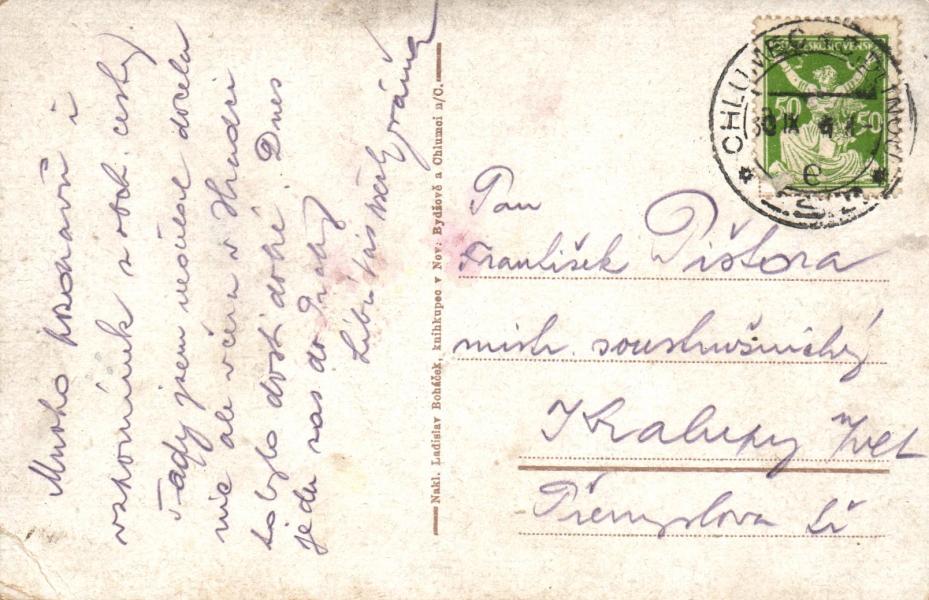 Mnoho pozdravů i
vzpomínek z obch. cesty.
Tady jsem nedělal docela
nic ale včera v Hradci
to bylo dosti dobré. Dnes
jedu zas do Prahy
Líbá Vás všechny
Nakl. Ladislav Boháček, knihkupec v Nov: Bydžově a Chlumci n/C.
POŠTA ČESKOSLOVENSKÁ
50 50
CHLUMEC
e
Pan
František Pištora
mistr. soustružnický
Kralupy
Přemyslova